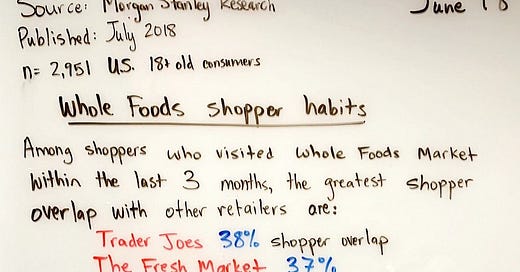 Source: Morgan Stanley Research
June 18
Published: July 2018
n= 2,951 U.S. 18+ old consumers
Whole Foods shopper habits
Among shoppers who visited Whole Foods Market
within the last 3 months, the greatest shopper
overlap with other retailers are:
Trader Joes 38% shopper overlap
The Fresh Market 37%